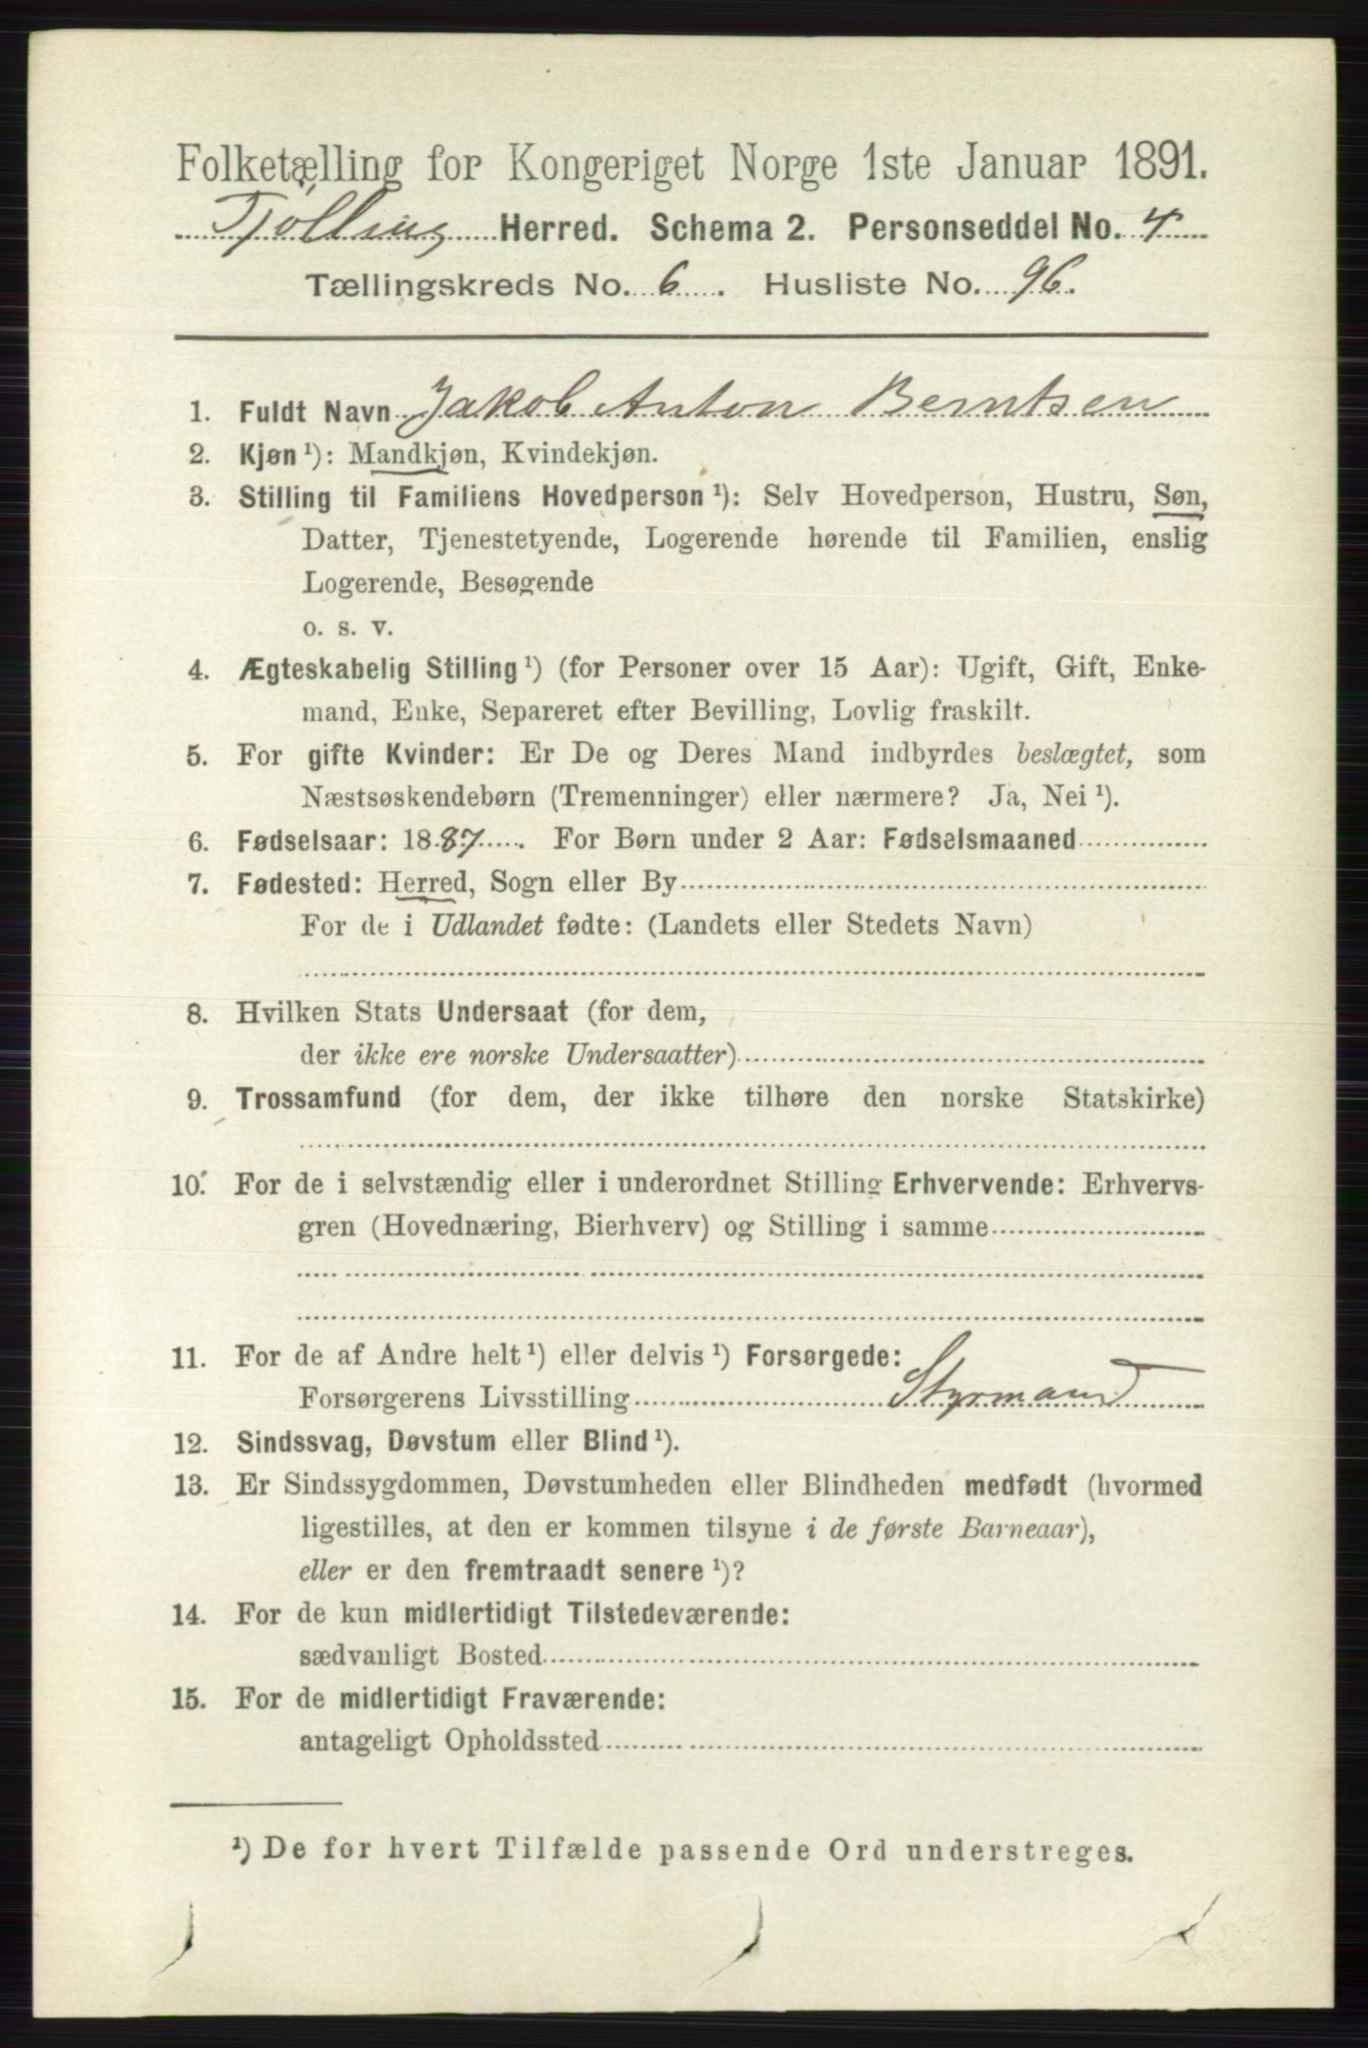 Folketælling for Kongeriget Norge 1ste Januar 1891.
Tjølling Herred. Schema 2. Personseddel No. 4
Tællingskreds No. 6. Husliste No. 96.
1. Fuldt Navn Jakob Anton Berntsen
2. Kjøn ¹): Mandkjøn, Kvindekjøn.
3. Stilling til Familiens Hovedperson ¹): Selv Hovedperson, Hustru, Søn,
Datter, Tjenestetyende, Logerende hørende til Familien, enslig
Logerende, Besøgende
o. s. v.
4. Ægteskabelig Stilling ¹) (for Personer over 15 Aar): Ugift, Gift, Enke-
mand, Enke, Separeret efter Bevilling, Lovlig fraskilt.
5. For gifte Kvinder: Er De og Deres Mand indbyrdes beslægtet, som
Næstsøskendebørn (Tremenninger) eller nærmere? Ja, Nei ¹).
6. Fødselsaar: 1887. For Børn under 2 Aar: Fødselsmaaned
7. Fødested: Herred, Sogn eller By
For de i Udlandet fødte: (Landets eller Stedets Navn)
8. Hvilken Stats Undersaat (for dem,
der ikke ere norske Undersaatter)
9. Trossamfund (for dem, der ikke tilhøre den norske Statskirke)
10. For de i selvstændig eller i underordnet Stilling Erhvervende: Erhvervs-
gren (Hovednæring, Bierhverv) og Stilling i samme
11. For de af Andre helt ¹) eller delvis ¹) Forsørgede:
Forsørgerens Livsstilling Styrmand
12. Sindssvag, Døvstum eller Blind ¹).
13. Er Sindssygdommen, Døvstumheden eller Blindheden medfødt (hvormed
ligestilles, at den er kommen tilsyne i de første Barneaar),
eller er den fremtraadt senere ¹)?
14. For de kun midlertidigt Tilstedeværende:
sædvanligt Bosted
15. For de midlertidigt Fraværende:
antageligt Opholdssted
¹) De for hvert Tilfælde passende Ord understreges.